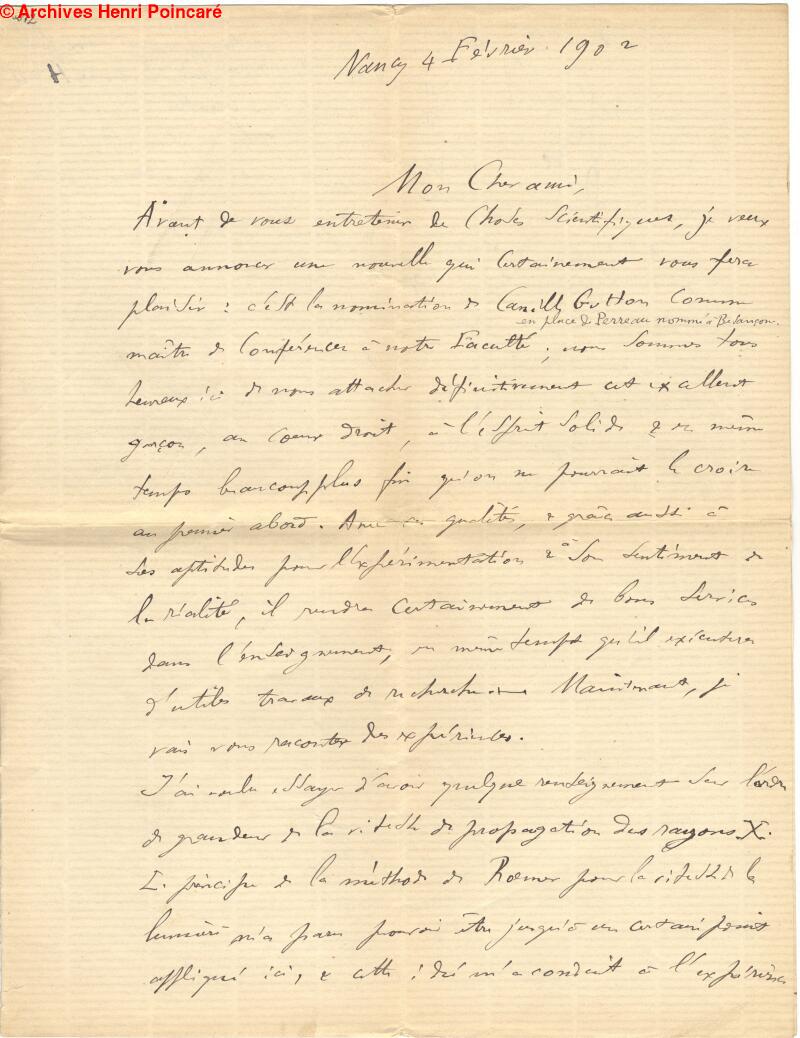 © Archives Henri Poincaré
Nancy 4 Février 1902
Mon Cher ami,
Avant de vous entretenir de choses scientifiques, je veux
vous annoncer une nouvelle qui certainement vous fera
plaisir : c'est la nomination de Camille Gutton comme
en place de Perreau nommé à Besançon.
maître de Conférences à notre Faculté ; nous sommes tous
heureux ici de nous attacher définitivement cet excellent
garçon, au cœur droit, à l'esprit solide & en même
temps beaucoup plus fin qu'on ne pourrait le croire
au premier abord. Avec ces qualités, & grâce aussi à
ses aptitudes pour l'Expérimentation & à son sentiment de
la réalité, il rendra certainement de bons services
dans l'enseignement, en même temps qu'il exécutera
d'utiles travaux de recherche — Maintenant, je
vais vous raconter des expériences.
J'ai voulu essayer d'avoir quelque renseignement sur l'ordre
de grandeur de la vitesse de propagation des rayons X.
Le principe de la méthode de Rœmer pour la vitesse de la
lumière m'a paru pouvoir être jusqu'à un certain point
appliqué ici, & cette idée m'a conduit à l'expérience